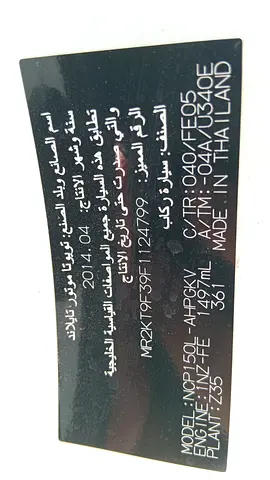 اسم الصانع وبلد الصنع: تويوتا موتور تايلاند
سنة وشهر الانتاج: 2014.04
تطابق هذه السيارة جميع المواصفات القياسية الخليجية
والتي صدرت حتى تاريخ الانتاج
الرقم المميز: MR2KT9F39F1124799
الصنف: سيارة ركاب
MODEL:NCP150L-AHPGKV C/TR:040/FE05
ENGINE:1NZ-FE 1497mL A/TM:-04A/U340E
PLANT:Z35 361 MADE IN THAILAND